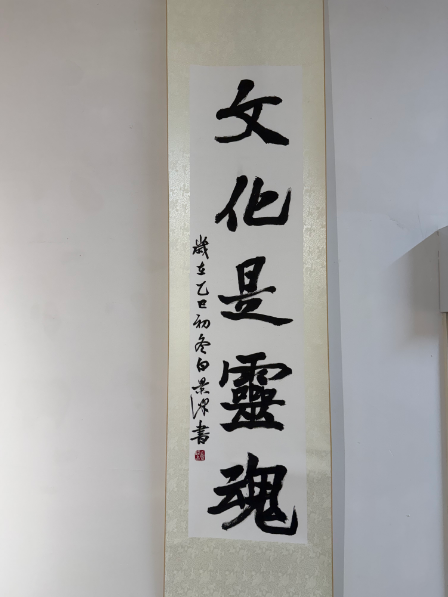 文化是靈魂
歲在乙巳初冬白景深書